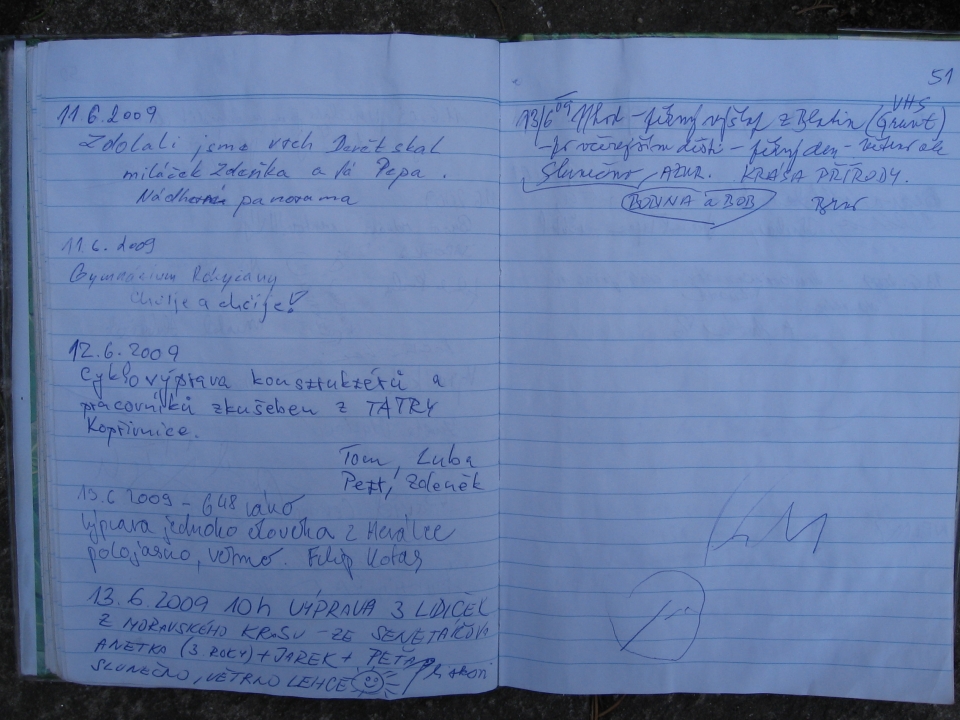 11 6. 2009
Zdolali jsme vrch Devět skal
miláček Zdeňka a já Pepa.
Nádherná panorama
11 6. 2009
Gymnázium Rokycany
Chčije a chčije!
12. 6. 2009
Cyklovýprava konstruktérů a
pracovníků zkušeben z TATRY
Kopřivnice.
Tom, Luba
Petr, Zdeněk
13. 6 2009 - 648 ráno
Výprava jednoho človeka z
polojasno, větrno. Filip Kotas
13. 6. 2009 10h VÝPRAVA 3 LIDIČEK
Z MORAVSKÉHO KRASU - ZE SENETÁŘOVA
ANETKA (3 ROKY) + JAREK + PEŤA
SLUNEČNO, VĚTRNO LEHCE
51
13/6 09 - pěkný výšlap z Blatin (
VHS
- po včerejším dešti - pěkný den -
Slunečno, AZUR. KRÁSA PŘÍRODY.
a BOB